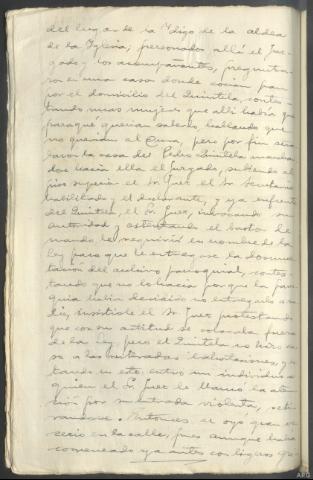 del lugar de la Ygo de la aldea
de la Iglesia; personados allá el Juz-
gado y los acompañantes, pregunta-
ron en una casa donde cocían pan
por el domicilio del Quintela, contes-
tando unas mujeres que allí había que
para qué querían saberlo hablando que
no querían al Cura, pero por fin seña-
laron la casa del Pedro Quintela marchan-
dos hacia ella el Juzgado, subiendo al
piso superior el Sr. Juez el Sr. Secretario
habilitado, el declarante, y ya enfrente
del Quintela, el Sr. Juez, invocando su
autoridad y ostentando el bastón de
mando le requirió en nombre de la
ley para que le entregase la documen-
tación del archivo parroquial, contes-
tando que no lo hacía porque la parro-
quia había decidido no entregarlo a na-
die, insistiole el Sr. Juez protestando
que con su actitud se colocaba fuera
de la ley, pero el Quintela no hizo ca-
so a las reiteradas exhortaciones, y es-
tando en esto entró un individuo a
quien el Sr. Juez le llamó la aten-
ción por su entrada violenta, reti-
randose. Entonces se oyó gran vo-
cerío en la calle, pues aunque había
comenzado ya antes con ligeros
ARG